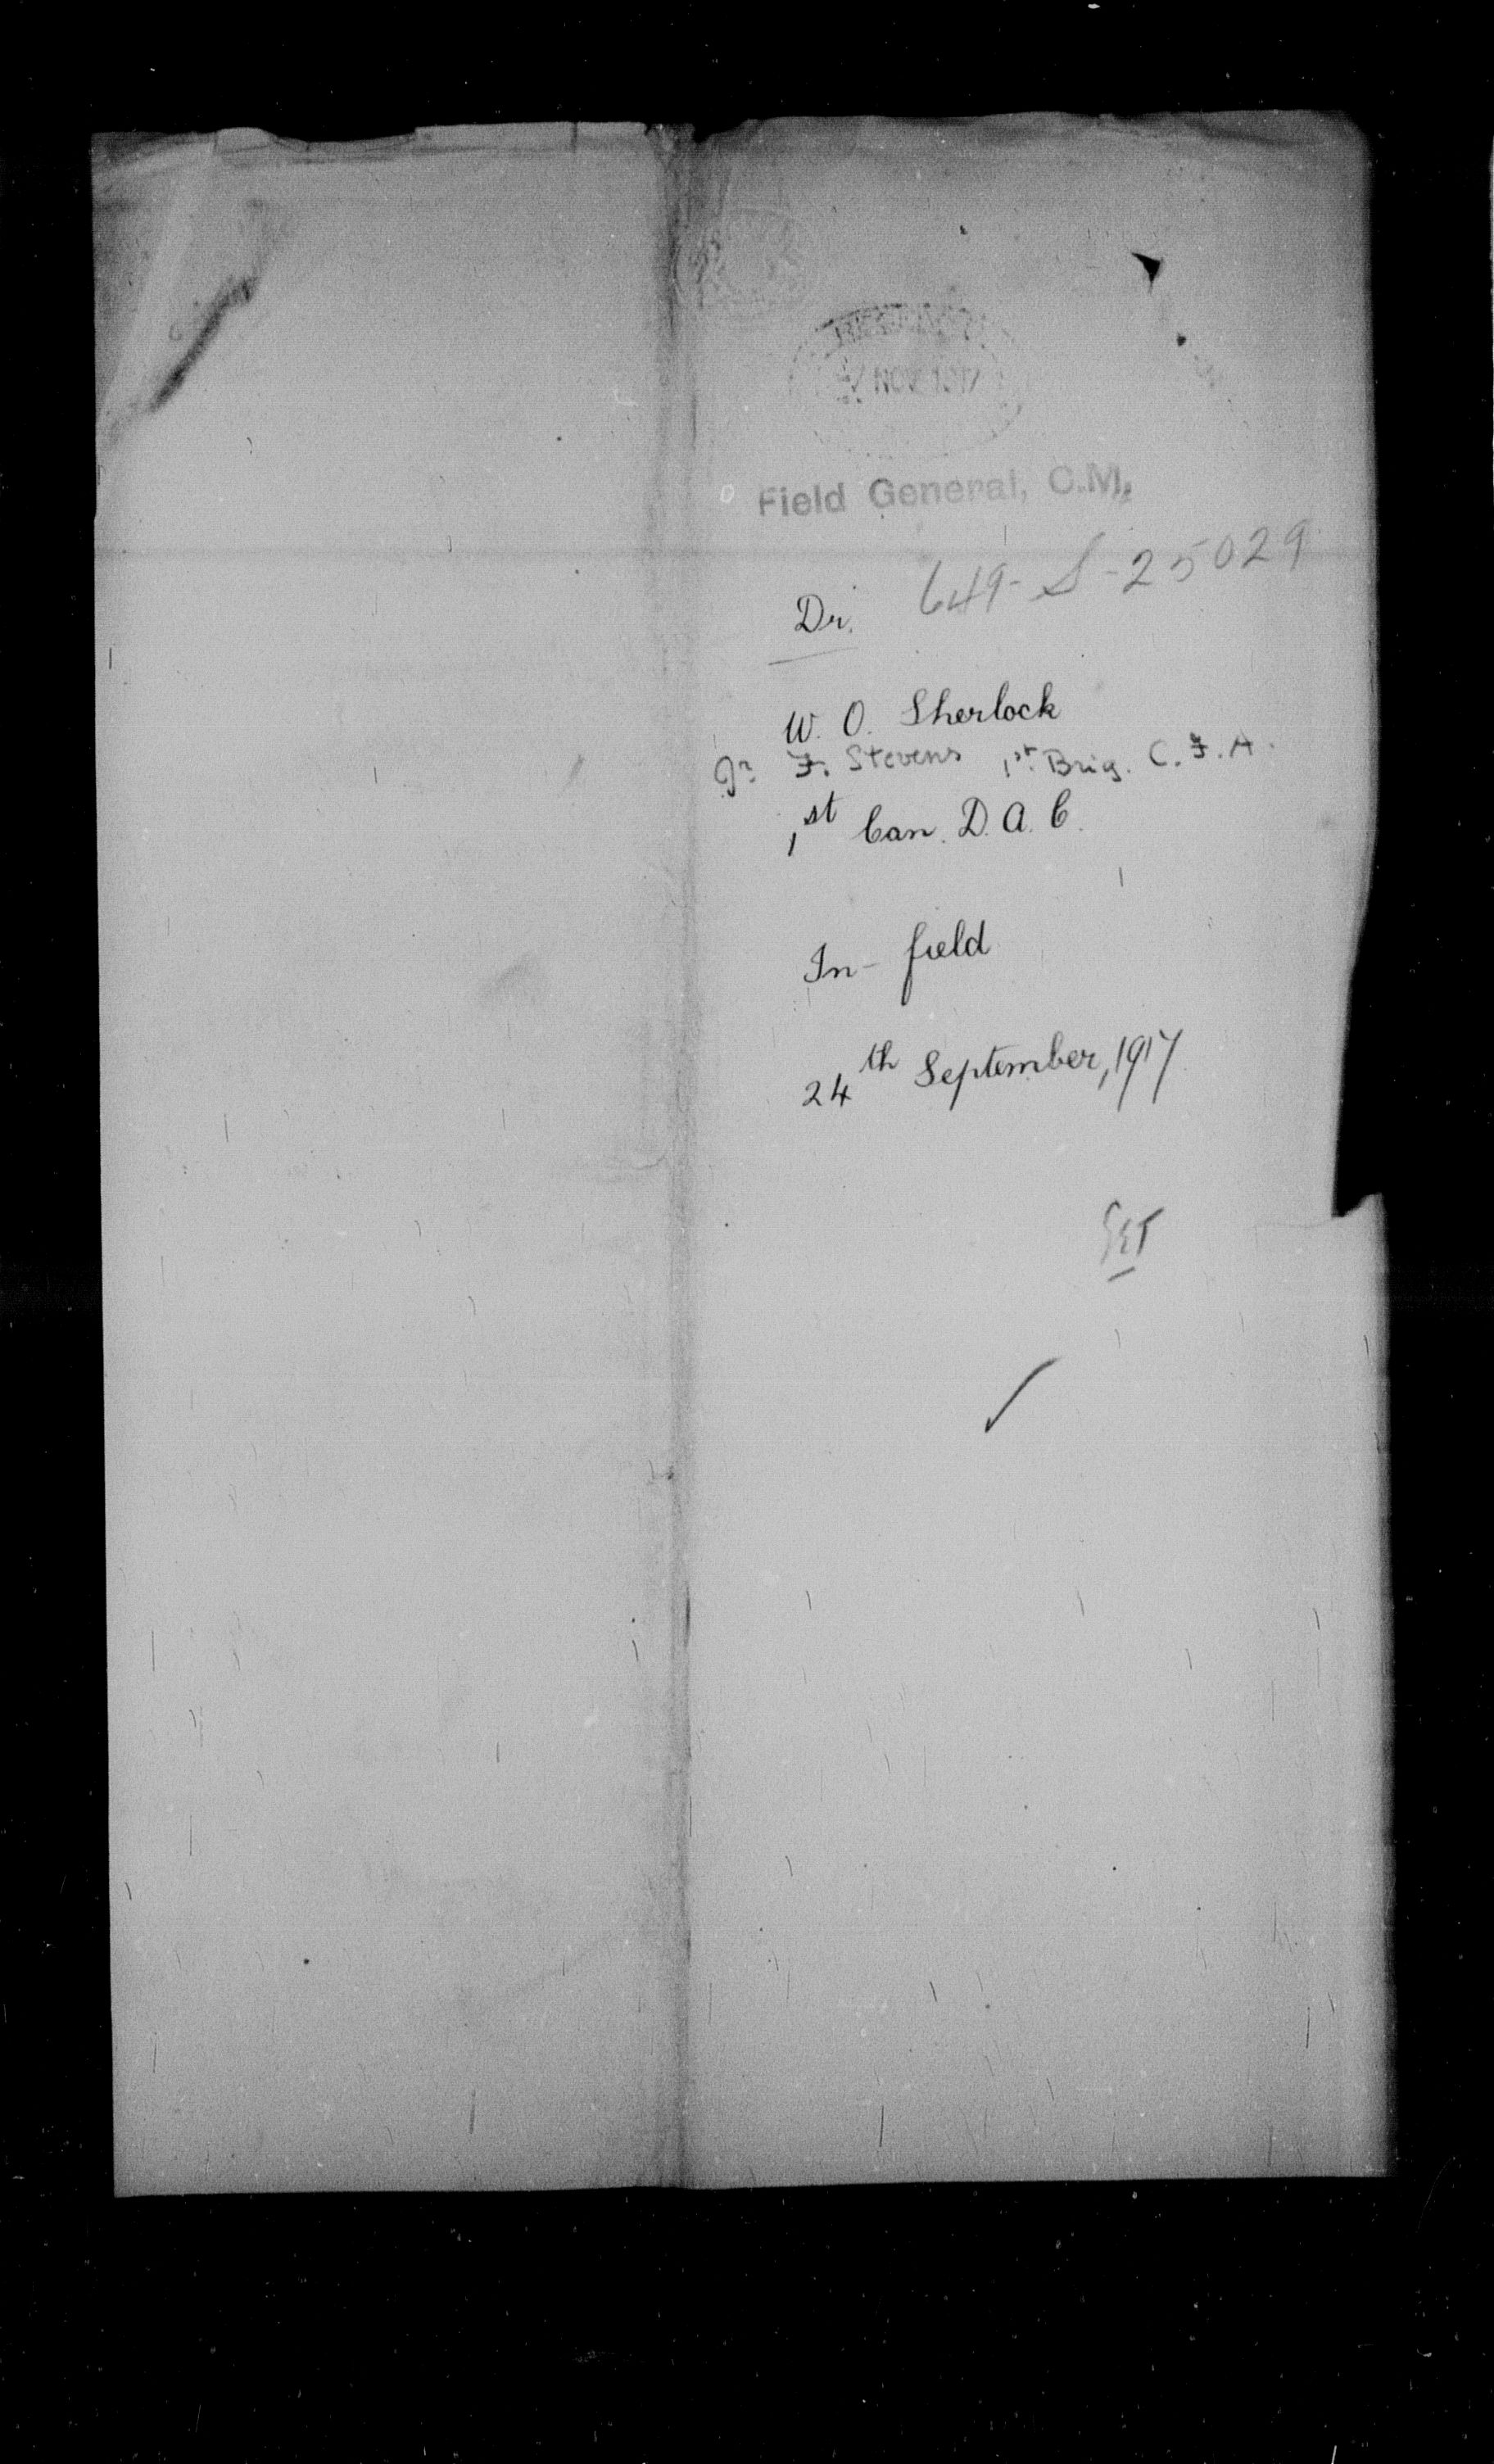 NOV 1917
Field General, C.M.
649-S-25029
Dr.
W. O. Sherlock
Gr. F. Stevens 1st. Brig. C.F.A.
1st Can. D.A.C.
In-field
24th September, 1917